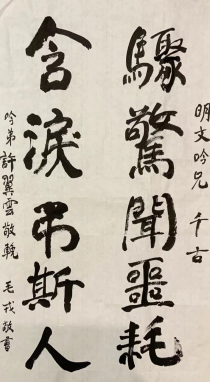 明文吟兄 千古
驟驚聞噩耗
含淚弔斯人
吟弟許翼雲敬輓 毛戎敬書